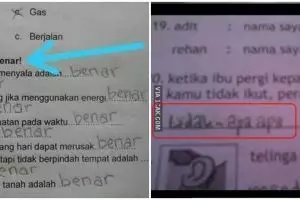 c. Gas
c. Berjalan
enar!
menyala adalah benar
g jika menggunakan energi benar
atan pada waktu benar
ang hari dapat merusak benar
tapi tidak berpindah tempat adalah ...
tanah adalah benar
19. adit : nama say
rehan : nama say
0. ketika ibu pergi kepa
kamu tidak ikut, per
apa apa
telinga
VIA 1CAK.COM